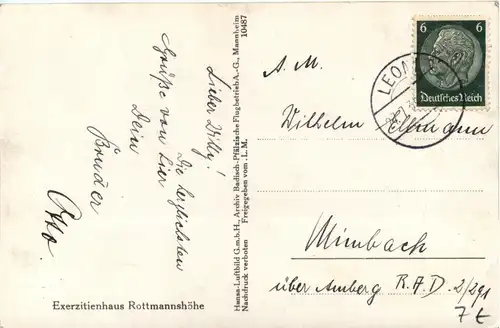 Lieber Willy!
Die herzlichsten
Grüße von hier
Dein
Bruder
Otto.
Exerzitienhaus Rottmannshöhe
Hansa-Luftbild G.m.b.H., Archiv Badisch-Pfälzische Flugbetrieb A.-G., Mannheim
Nachdruck verboten Freigegeben vom . L. M. 10487
6 6
Deutsches Reich
LEON
A. M.
Wilhelm
Mimbach
über Amberg R. A. D. 2/291